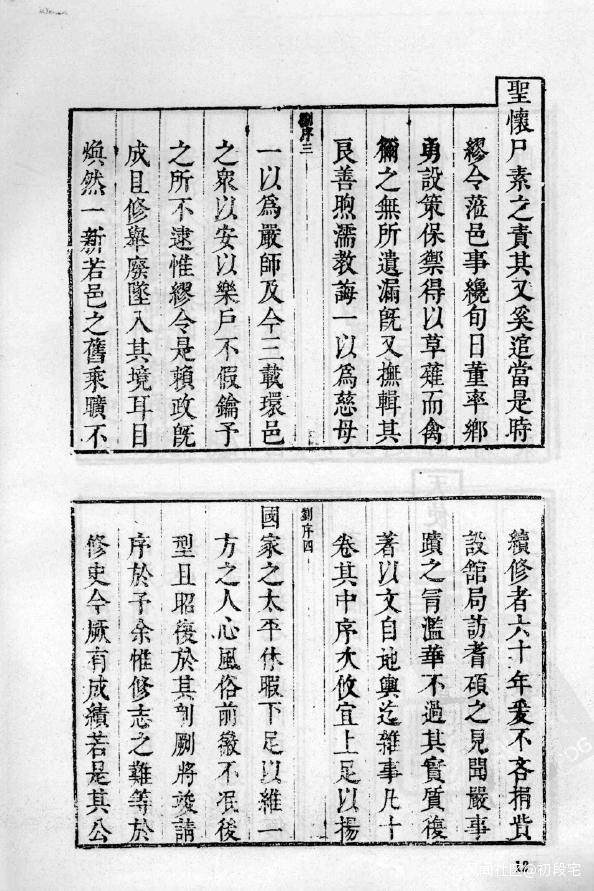 聖懷尸素之責其又奚逭當是時
繆令蒞邑事纔旬日董率鄉
勇設策保禦得以草薙而禽
獮之無所遺漏旣又撫輯其
良善煦濡教誨一以爲慈母
劉序三
一以爲嚴師及今三載環邑
之衆以安以樂戶不假鑰予
之所不逮惟繆令是賴政旣
成且修舉廢墜入其境耳目
煥然一新若邑之舊乘曠不
續修者六十年爰不吝捐貲
設館局訪耆碩之見聞嚴事
蹟之冐濫華不過其實質復
著以文自地輿迄雜事凡十
卷其中序次攸宜上足以揚
劉序四
國家之太平休暇下足以維一
方之人心風俗前徽不泯後
型且昭復於其剞劂將竣請
序於予余惟修志之難等於
修史今厥有成績若是其公
12
@初段宅